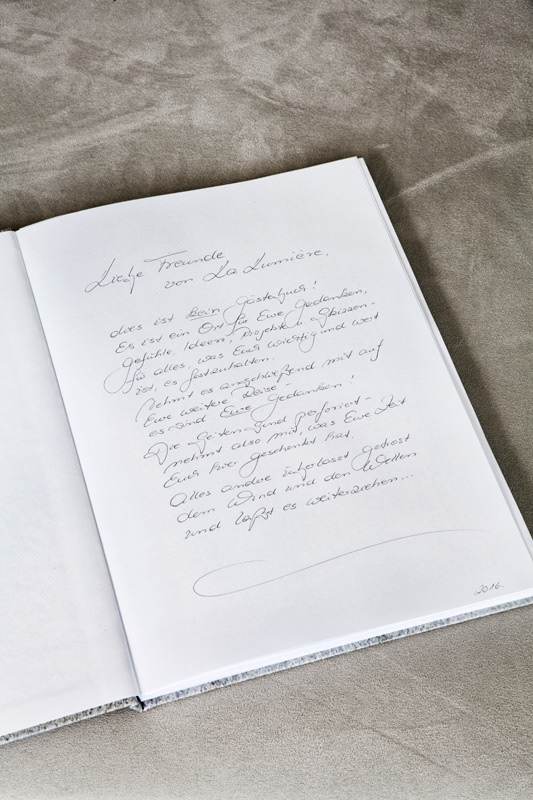 Liebe Freunde
von La Lumière,
dies ist kein Gästebuch!
Es ist ein Ort für Eure Gedanken,
Gefühle, Ideen, Projekte u. Skizzen -
für alles, was Euch wichtig und wert
ist, es festzuhalten.
Nehmt es anschließend mit auf
Eure weitere Reise -
es sind Eure Gedanken!
Die Seiten sind perforiert -
nehmt also mit, was Eure Zeit
Euch hier geschenkt hat.
Alles andre überlasst getrost
dem Wind und den Wellen
und laßt es weiterziehen...
2016